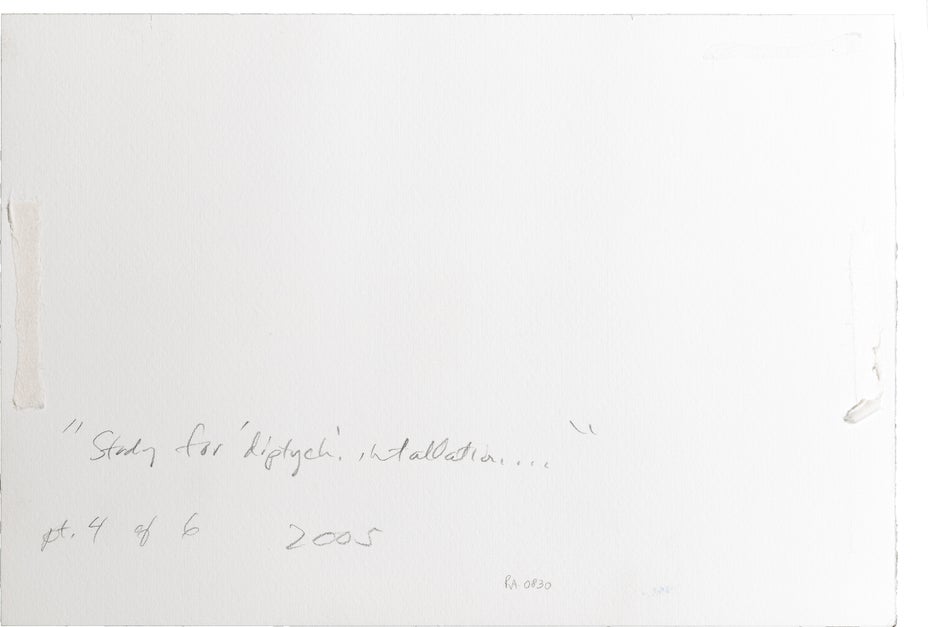 "Study for 'diptych'. intallation...."
pt. 4 of 6 2005
RA 0830